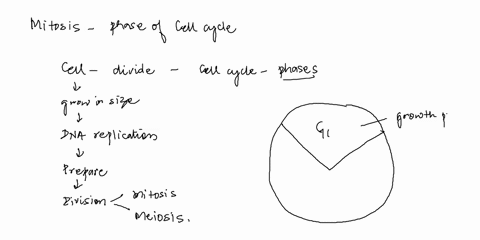 Mitosis - phase of Cell cycle
Cell - divide - Cell cycle - phases
↓
grow in size
↓
DNA replication
↓
Prepare
↓
Division < Mitosis
Meiosis.
G1
growth p